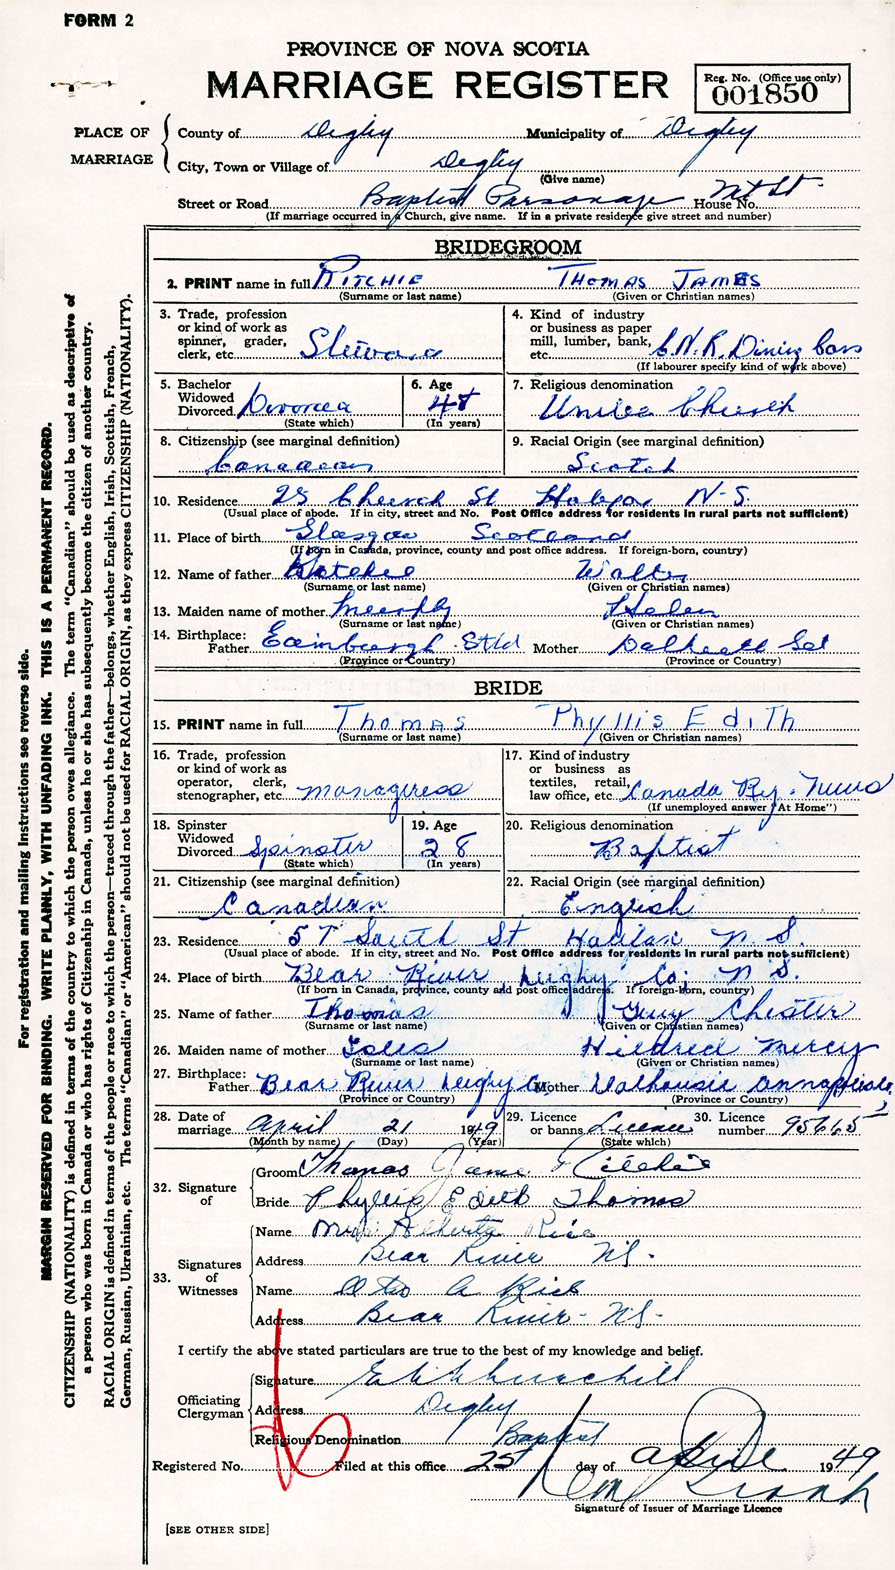 FORM 2
PROVINCE OF NOVA SCOTIA
MARRIAGE REGISTER
Reg. No. (Office use only)
001850
PLACE OF MARRIAGE
County of Digby Municipality of Digby
City, Town or Village of Digby
(Give name)
Street or Road Baptist Parsonage House No. Mt St.
(If marriage occurred in Church, give name. If in a private residence give street and number)
BRIDEGROOM
2. PRINT name in full RITCHIE THOMAS JAMES
(Surname or last name) (Given or Christian names)
3. Trade, profession or kind of work as spinner, grader, clerk, etc. Steward
4. Kind of industry or business as paper mill, lumber, bank, etc. C.N.R. Dining Cars
(If labourer specify kind of work above)
5. Bachelor Widowed Divorced Divorced
(State which)
6. Age 48
(In years)
7. Religious denomination
United Church
8. Citizenship (see marginal definition)
Canadian
9. Racial Origin (see marginal definition)
Scotch
10. Residence 28 Church St Halifax N-S.
(Usual place of abode. If in city, street and No. Post Office address for residents in rural parts not sufficient)
11. Place of birth Glasgow Scotland
(If born in Canada, province, county and post office address. If foreign-born, country)
12. Name of father Ritchie Walter
(Surname or last name) (Given or Christian names)
13. Maiden name of mother Murphy Helen
(Surname or last name) (Given or Christian names)
14. Birthplace: Father Edinburgh Stld Mother Dalkeith
(Province or Country) (Province or Country)
BRIDE
15. PRINT name in full THOMAS PHYLLIS EDITH
(Surname or last name) (Given or Christian names)
16. Trade, profession or kind of work as operator, clerk, stenographer, etc. manageress
17. Kind of industry or business as textiles, retail, law office, etc. Canada Ry. News
(If unemployed answer "At Home")
18. Spinster Widowed Divorced Spinster
(State which)
19. Age 28
(In years)
20. Religious denomination
Baptist
21. Citizenship (see marginal definition)
Canadian
22. Racial Origin (see marginal definition)
English
23. Residence 57 South St Halifax N.S.
(Usual place of abode. If in city, street and No. Post Office address for residents in rural parts not sufficient)
24. Place of birth Bear River Digby Co; N.S.
(If born in Canada, province, county and post office address. If foreign-born, country)
25. Name of father Thomas Guy Chester
(Surname or last name) (Given or Christian names)
26. Maiden name of mother Isles Hildred Mercy
(Surname or last name) (Given or Christian names)
27. Birthplace: Father Bear River Digby Co Mother Dalhousie Annapolis Co.
(Province or Country) (Province or Country)
28. Date of marriage April 21 1949
(Month by name) (Day) (Year)
29. Licence or banns Licence
(State which)
30. Licence number 95665
32. Signature of
Groom Thomas James Ritchie
Bride Phyllis Edith Thomas
33. Signatures of Witnesses
Name Mrs. Alberta Rice
Address Bear River NS.
Name A Rice
Address Bear River - NS-
I certify the above stated particulars are true to the best of my knowledge and belief.
Officiating Clergyman
Signature Churchill
Address Digby
Religious Denomination Baptist
Registered No. Filed at this office 25 day of April 1949
Signature of Issuer of Marriage Licence
[SEE OTHER SIDE]
For registration and mailing instructions see reverse side.
MARGIN RESERVED FOR BINDING. WRITE PLAINLY, WITH UNFADING INK. THIS IS A PERMANENT RECORD.
CITIZENSHIP (NATIONALITY) is defined in terms of the country to which the person owes allegiance. The term "Canadian" should be used as descriptive of
a person who was born in Canada or who has rights of Citizenship in Canada, unless he or she has subsequently become the citizen of another country.
RACIAL ORIGIN is defined in terms of the people or race to which the person—traced through the father—belongs, whether English, Irish, Scottish, French,
German, Russian, Ukrainian, etc. The terms "Canadian" or "American" should not be used for RACIAL ORIGIN, as they express CITIZENSHIP (NATIONALITY).